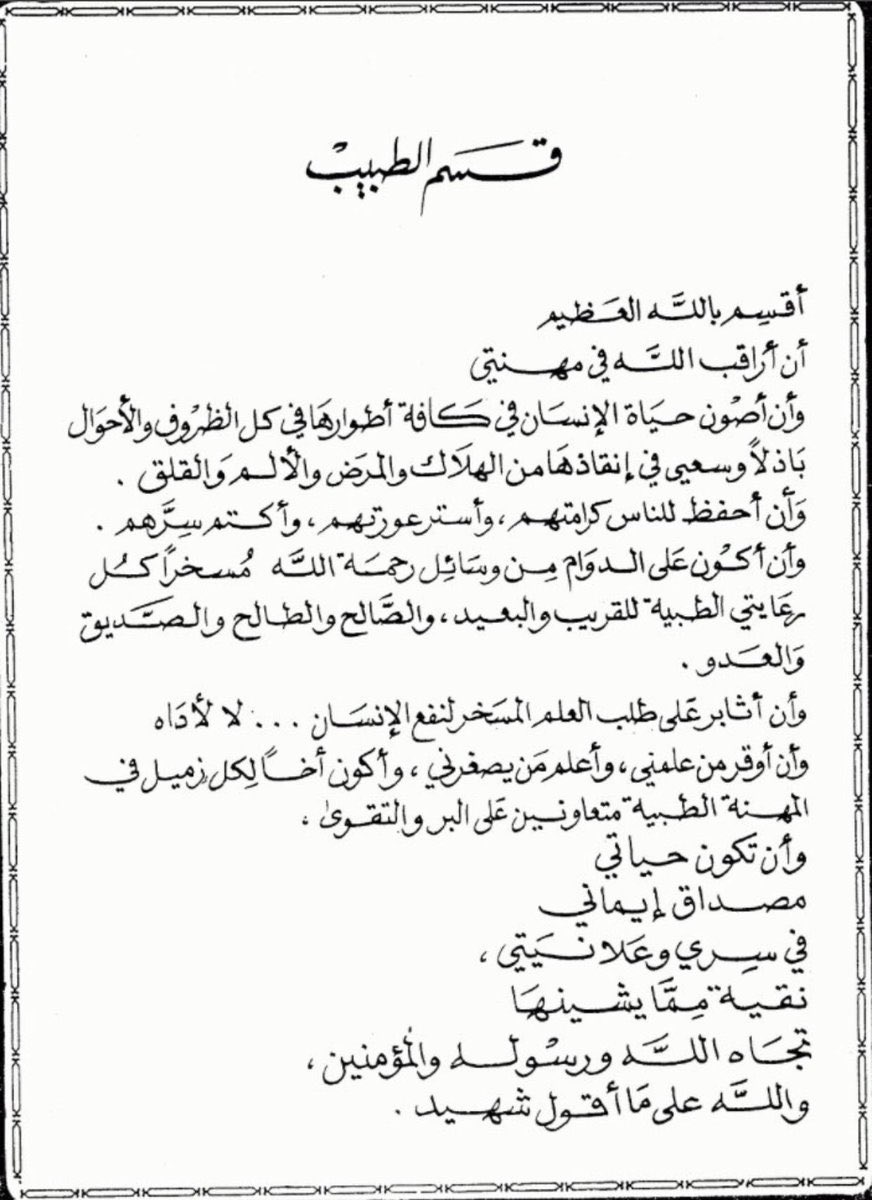 قسم الطبيب
أقسِم بالله العَظيم
أن أراقب اللَّه في مهنتي
وأن أصُون حيَاة الإنسَان في كَافة أطوارهَا في كل الظرُوف والأحوَال
بَاذلاً وسعيي في إنقاذهَا من الهلَاك والمرَض والألم وَالقلق .
وَأن أحفظ للناس كرامتهم ، وأستر عورتهم ، وأكتم سِرَّهم .
وأن أكوُن عَلى الدوَام مِن وسَائل رحمَة اللَّه مُسخراً كُل
رعَايتي الطبية للقريب والبعيد ، والصَّالح والطالح والصَّديق
وَالعَدو .
وأن أثابر عَلى طلب العلم المسَخر لنفع الإنسَان ... لا لأذَاه
وأن أوقر من علمني ، وأعلم مَن يصغرني ، وأكون أخاً لِكل زميل في
المهنة الطبية متعاونين عَلى البر والتقوىٰ ،
وأن تكون حياتي
مصداق إيماني
في سِري وعَلانيَتي ،
نقية مِمَّا يشينهَا
تجَاه اللَّه ورسُوله والمُؤمنين ،
واللَّه على مَا أقول شهيد .